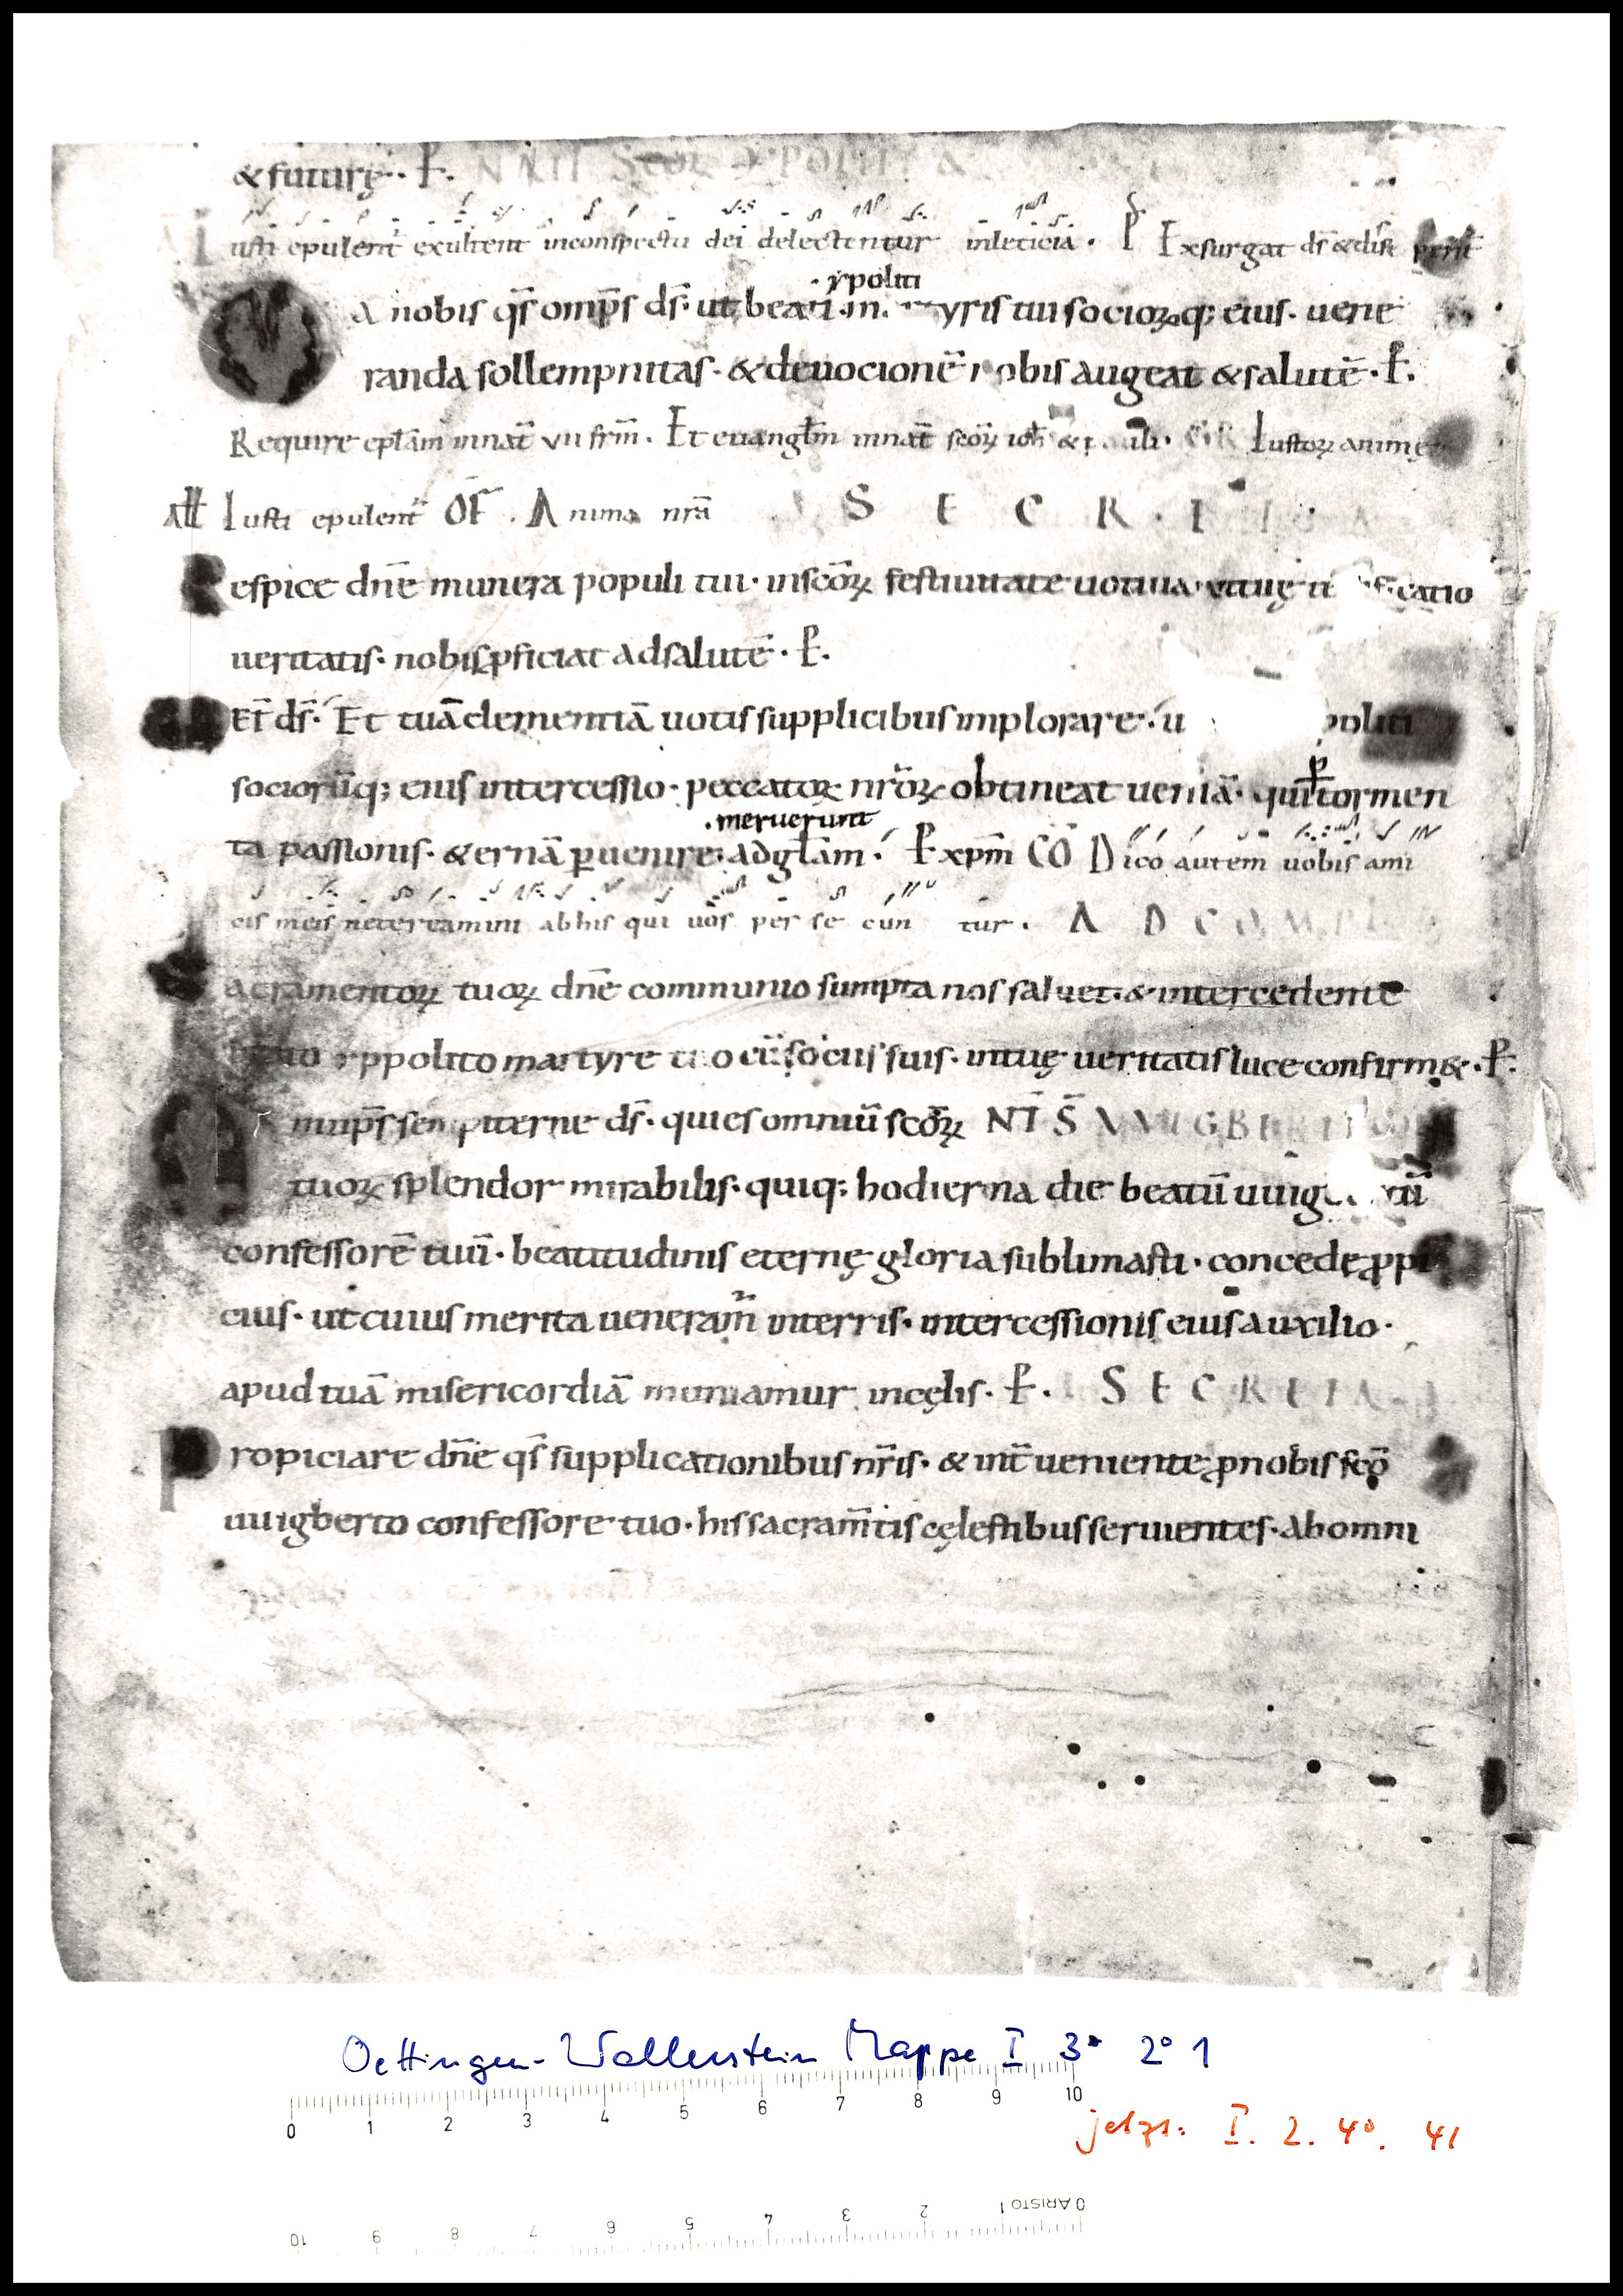 & futurę · P̄ · NAT̄ SCOR YPOLITI &
Iusti epulent̄ exultent inconspectu dei delectentur inleticia · P̄ Exsurgat ds̄ & dissi
ypoliti
A nobis qs̄ omps̄ ds̄ · ut beati · yris tui socioꝝq; eius · uene
randa sollempnitas · & deuocionē nobis augeat & salutē · P̄ ·
Require eplām innat̄ vii frm̄ · Et euanglm̄ innat̄ scōꝝ ioh̄ & GR̄ Iustoꝝ animę
All̄ Iusti epulent̄ OF̄ · Anima nrā S E C R E T A
Respice dnē munera populi tui · inscōꝝ festiuitate uotiua · &tuę catio
ueritatis · nobis ꝓficiat adsalutē · P̄ ·
ET̄ ds̄ · Et tuā clementiā uotis supplicibus implorare · u politi
sociorūq; eius intercessio · peccatoꝝ nrōꝝ obtineat ueniā · qui ꝑ tormen
· meruerunt
ta passionis · & ernā ꝑuenire · adglām · P̄ xpm̄ CŌ Dico autem uobis ami
cis meis neterreamini abhis qui uos per se cun tur · A D C O M P L
Sacramentoꝝ tuoꝝ dnē communio sumpta nos saluet · & intercedente
yppolito martyre tuo cū sociis suis · intuę ueritatis luce confirm& · P̄ ·
mnips̄ sempiterne ds̄ · qui es omniū scōꝝ NT̄ S̄ VVIGBERTI
tuoꝝ splendor mirabilis · quiq; hodierna die beatū uuig
confessorē tuū · beatitudinis eternę gloria sublimasti · concede ꝓpi
cius · ut cuius merita ueneram̄ interris · intercessionis eius auxilio ·
apud tuā misericordiā muniamur incęlis · P̄ · S E C R E T A
Propiciare dnē qs̄ supplicationibus nrīs · & int̄ueniente ꝓnobis scō
uuigberto confessore tuo · his sacram̄tis cęlestibus seruientes · abomni
Oettingen-Wallerstein Mappe I 3° 2° 1
0 1 2 3 4 5 6 7 8 9 10
jetzt: I. 2. 4°. 41
0 ARISTO 1 2 3 4 5 6 7 8 9 10